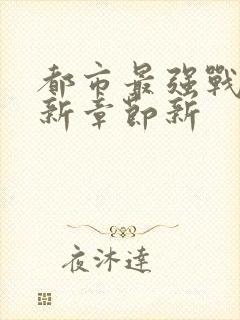 都市最强戰
新章節新
夜沐達